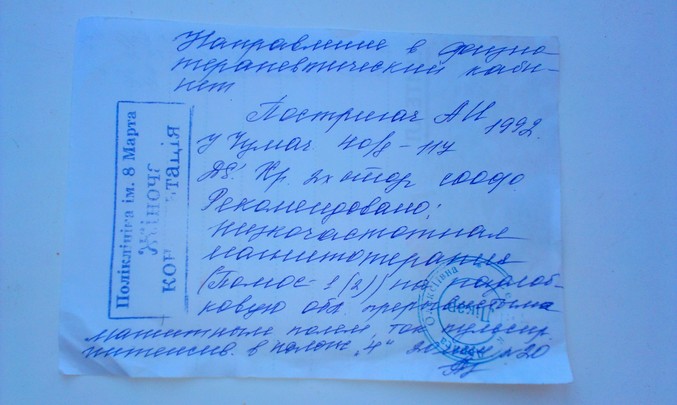 Направление в физио
терапевтический каби-
нет
Постригач АИ 1992.
у Чумач 40/8 - 117
DS: Хр. 2х стор
Рекомендовано:
низкочастотная
магнитотерапия
(Полюс-1(2)) на надлоб-
ковую обл.
магнитным полем, ток пульсир.
интенсив. в полож "4" N 20
Поліклініка ім. 8 Марта
ЖІНОЧА
КОН ТАЦІЯ